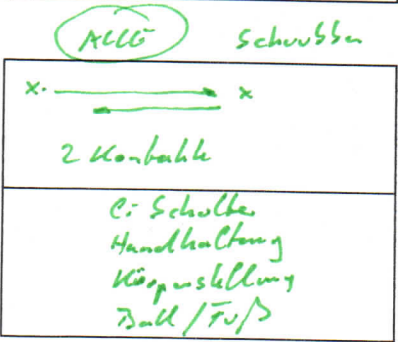 ALLE
x. x
2 Kontakte
Li Schulter
Handhaltung
Körperstellung
Ball / Fuß